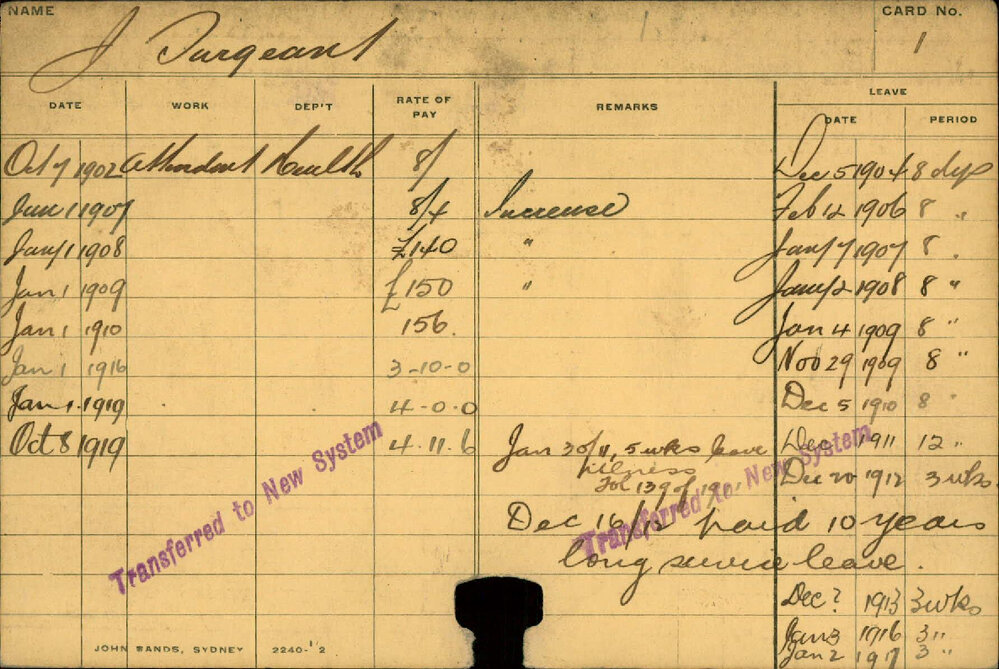 NAME CARD No.
J Surgeant 1
DATE WORK DEP'T RATE OF PAY REMARKS LEAVE
DATE PERIOD
Oct 7 1902 Attendant Health 8/ Dec 5 1904 8 dys
Jan 1 1907 8/4 Increase Feb 12 1906 8 "
Jany 1 1908 £140 " Jany 7 1907 8 "
Jan 1 1909 £150 " Jany 2 1908 8 "
Jan 1 1910 156. Jan 4 1909 8 "
Jan 1 1916 3-10-0 Nov 29 1909 8 "
Jan 1 1919 4-0-0 Dec 5 1910 8 "
Oct 8 1919 4-11-6 Jan 30/11, 5 wks leave Dec 1911 12 "
illness
Fol 139 of Dec 20 1912 3 wks
Dec 16/12 paid 10 years
long service leave.
Dec ? 1913 3 wks
Jan 3 1916 3 "
Jan 2 1917 3 "
Transferred to New System
Transferred to New System
JOHN SANDS, SYDNEY 2240-1/2